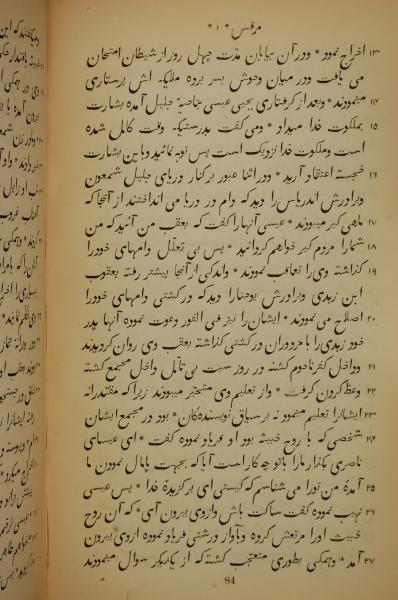 مرقس * ۱ *
۱۳ اخراج نمود * ودر آن بیابان مدت چهل روز از شیطان امتحان
می یافت ودر میان وحوش بسر برده ملایکه اش پرستاری
۱۴ میمودند * وبعد از گرفتاری یحیی عیسی بناحیهٔ جلیل آمده بشارت
۱۵ بملکوت خدا میداد * ومی گفت بدرستیکه وقت کامل شده
است وملکوت خدا نزدیک است پس توبه نمائید وباین بشارت
۱۶ خجسته اعتقاد آرید * ودر اثنا عبور بر کنار دریای جلیل شمعون
وبرادرش اندریاس را دید که دام در دریا می انداختند از آنجا که
۱۷ ماهی گیر میبودند * عیسی آنها را گفت که بعقب من آئید که من
۱۸ شما را مردم گیر خواهم گردانید * پس بی تعلل دامهای خود را
۱۹ گذاشته وی را تعاقب نمودند * واندکی از آنجا پیشتر رفته یعقوب
ابن زبدی وبرادرش یوحنا را دید که در کشتی دامهای خود را
۲۰ اصلاح می نمودند * ایشان را نیز فی الفور دعوت نموده آنها پدر
خود زبدی را با مزدوران در کشتی گذاشته بعقب وی روان گردیدند
۲۱ وداخل کفرناحوم گشته در روز سبت بی تأمل داخل مجمع گشته
۲۲ وعظ کردن گرفت * واز تعلیم وی متحیر میبودند زیرا که مقتدرانه
۲۳ ایشانرا تعلیم مینمود نه بر سیاق نویسنده کان * بود در مجمع ایشان
۲۴ شخصی که با روح خبیثه بود او فریاد نموده گفت * ای عیسای
ناصری بگذار ما را با تو چه کار است آیا که بجهت پامال نمودن ما
۲۵ آمدهٔ من تو را می شناسم که کیستی ای برگزیدهٔ خدا * پس عیسی
۲۶ نهیب نموده گفت ساکت باش وازوی بیرون آی * که آن روح
خبیث او را مرتعش کرده وبآواز درشتی فریاد نموده ازوی بیرون
۲۷ آمد * وهمگی بطوری متعجب گشته که از یکدیگر سوال مینمودند
84